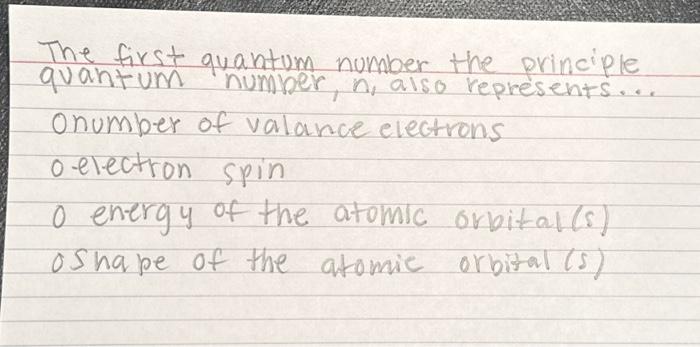 The first quantum number the principle
quantum number, n, also represents...
o number of valance electrons
o electron spin
o energy of the atomic orbital(s)
o shape of the atomic orbital (s)